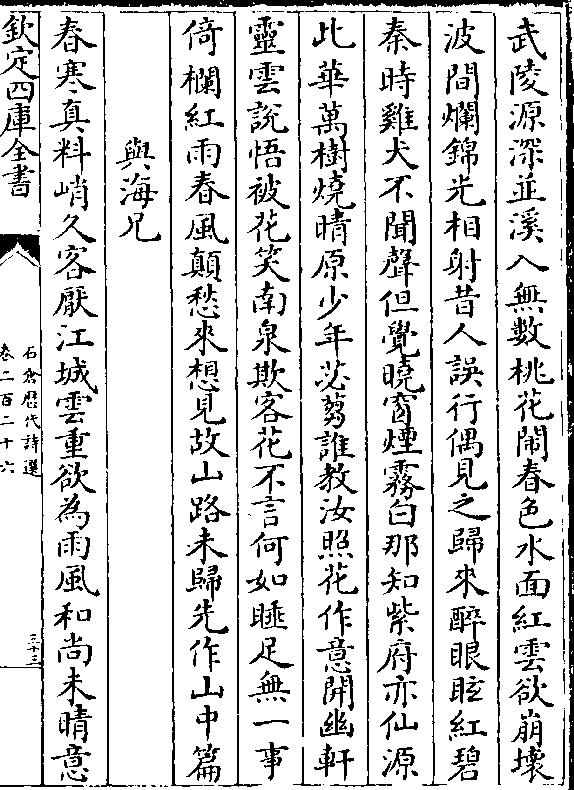 武陵源深並溪入無數桃花鬧春色水面紅雲欲崩壞
波間爛錦光相射昔人誤行偶見之歸來醉眼眩紅碧
秦時雞犬不聞聲但覺曉窗煙霧白那知紫府亦仙源
此華萬樹燒晴原少年苾蒭誰教汝照花作意開幽軒
靈雲說悟被花笑南泉欺客花不言何如睡足無一事
倚欄紅雨春風顛愁來想見故山路未歸先作山中篇
與海兄
春寒真料峭久客厭江城雲重欲為雨風和尚未晴意
欽定四庫全書
石倉歷代詩選
卷二百二十六
三十三